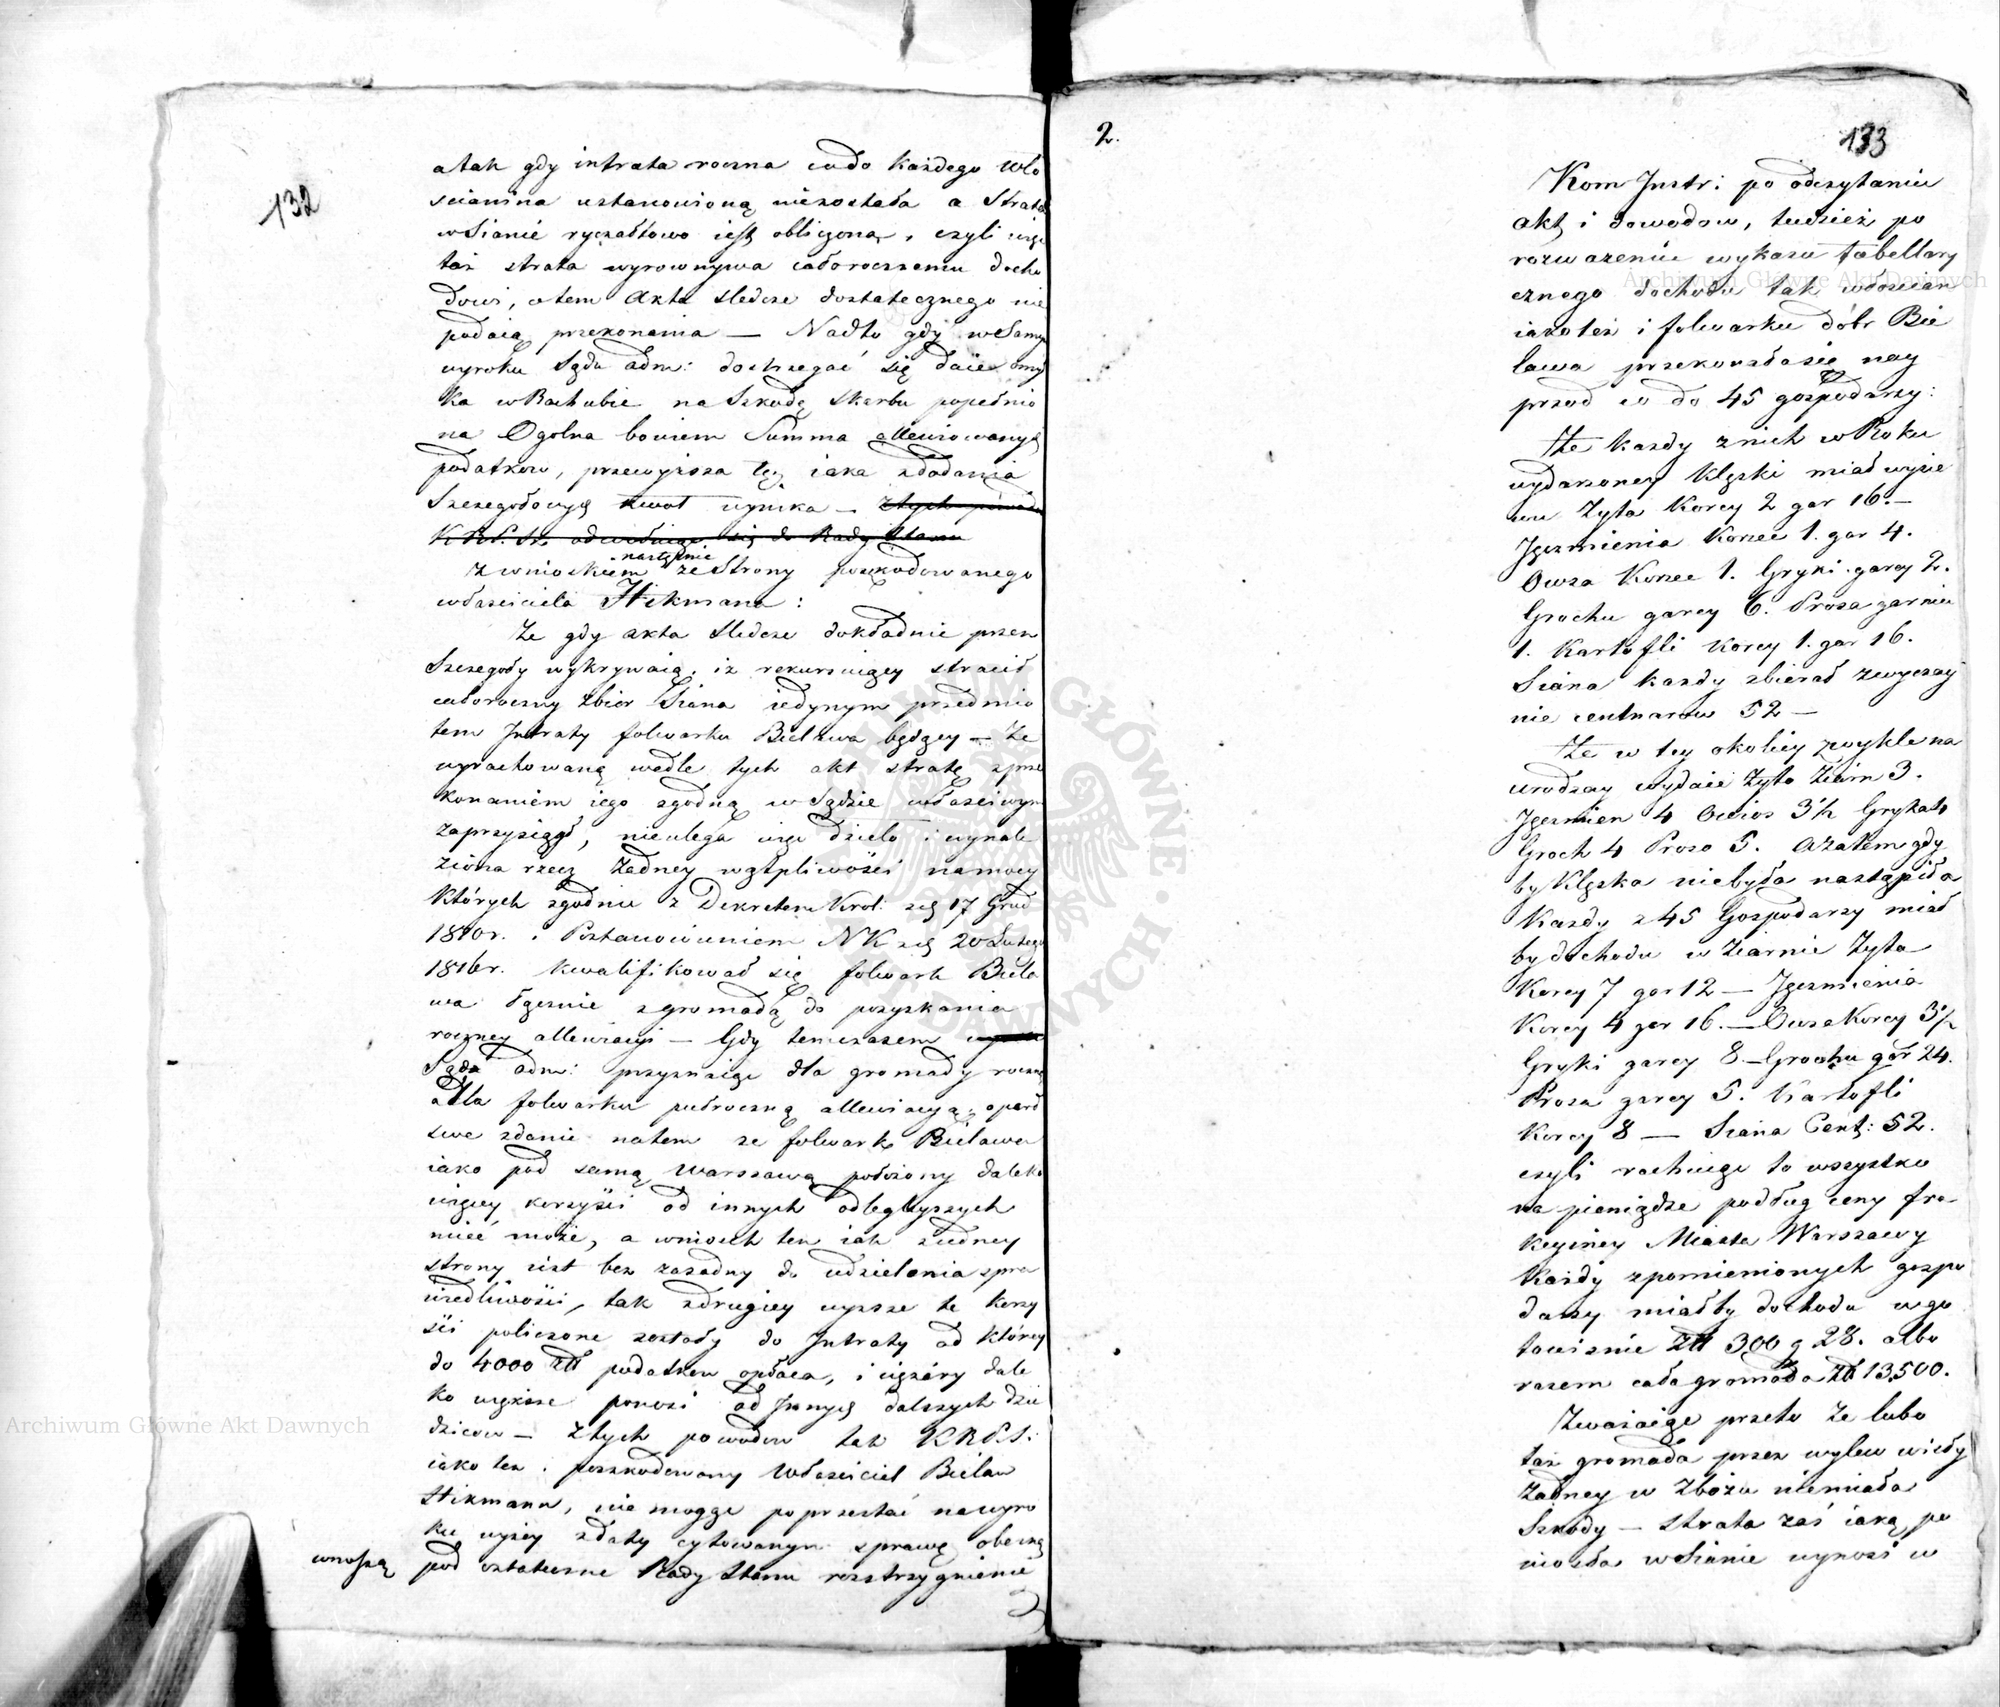 132
a tak gdy intrata roczna co do każdego Wło
scianina ustanowioną niezostała a Strata
w Sianie ryczałtowo iest obliczona, czyli więc
taż strata wyrownywa całorocznemu docho
dowi, o tem Akta sledcze dostatecznego nie
podaią przekonania — Nadto gdy w Samym
wyroku Sądu adm: dostrzegać się daie omy
ka w Rachubie na Szkodę Skarbu popełnio
na Ogolna bowiem Summa allewiowanych
podatkow, przewyższa tę iaka z dodania
Szczegołowych kwot wynika — z tych powodow
K.R.P.S. odwołuiąc się do Rady Stanu
następnie
z wnioskiem ze Strony poszkodowanego
własciciela Hikmana:
Ze gdy akta Sledcze dokładnie przez
Szczegoły wykrywaią, iż rekursuiący stracił
całoroczny zbior Siana iedynym przedmio
tem Intraty folwarku Bielawa będący — Ze
wyrachowaną wedle tych akt stratę z prze
konaniem iego zgodną w Sądzie własciwym
zaprzysiągł, nieulega więc dzieło i wynale
ziona rzecz żadney wątpliwości na mocy
których zgodnie z Dekretem Krol: z dch 17 Grud
1810r. i Postanowieniem NK z dch 20 Lutego
1816r. kwalifikował się folwark Biela
wa łącznie z gromadą do pozyskania
roczney allewiacyi — Gdy tymczasem
Sąd adm: przyznaiąc dla gromady roczną
a dla folwarku pułroczną allewiacyą, oparł
swe zdanie na tem ze folwark Bielawa
iako pod samą Warszawą położony daleko
więcey korzyści od innych odleglyszych
mieć może, a wniosek ten iak z iedney
strony iest bez zasadny do udzielenia spra
wiedliwości, tak z drugiey wyższe te korzy
ści policzone zostały do Intraty od ktorey
do 4000 zł podatku opłaca, i ciężary dale
ko większe ponosi od Innych dalszych dzie
dzicow — Z tych powodow tak KRPS:
iako też i poszkodowany Własciciel Bielaw
Hikmann, nie mogąc poprzestać na wyro
ku wyżey z daty cytowanym sprawę obecną
wnoszą pod ostateczne Rady Stanu rozstrzygnienie
2.
133
Kom Instr: po odczytaniu
akt i dowodow, tudzież po
rozwazeniu wykazu tabellary
cznego dochodu tak włoscian
iako też i folwarku dóbr Bie
lawa przekonała się nay
przod co do 45 gospodarzy:
Ze kazdy z nich w Roku
wydarzoney klęski miał wysie
wu Zyta Korcy 2 gar 16. —
Jęczmienia Korzec 1. gar 4.
Owsa Korzec 1. Gryki garcy 2.
Grochu garcy 6. Prosa garniec
1. Kartofli Korcy 1. gar 16.
Siana kazdy zbierał zwyczay
nie centnarow 52 —
Ze w tey okolicy zwykle na
urodzay wydaie Zyto Ziarn 3.
Jęczmien 4 Owies 3 1/2 Gryka 4
Groch 4 Proso 5. A zatem gdy
by klęska niebyła nastąpiła
Kazdy z 45 Gospodarzy miał
by dochodu w Ziarnie Zyta
Korcy 7 gar 12 — Jęczmienia
Korcy 4 gar 16. — Owsa Korcy 3 1/2
Gryki garcy 8. — Grochu gar 24.
Prosa garcy 5. Kartofli
Korcy 8 — Siana Cent: 52.
czyli rachuiąc to wszystko
na pieniądze podług ceny fra-
kcyiney Miasta Warszawy
Każdy z pomienionych gospo
darzy miałby dochodu w go
towiznie Zł 300 g 28. albo
razem cała gromada Zł 13,500.
Zważaiąc przeto że lubo
taż gromada przez wylew wisły
żadney w zbożu niemiała
Szkody — strata zaś iaką po
niosła w Sianie wynosi w
Archiwum Główne Akt Dawnych
Archiwum Główne Akt Dawnych
ARCHIWUM GŁÓWNE AKT DAWNYCH